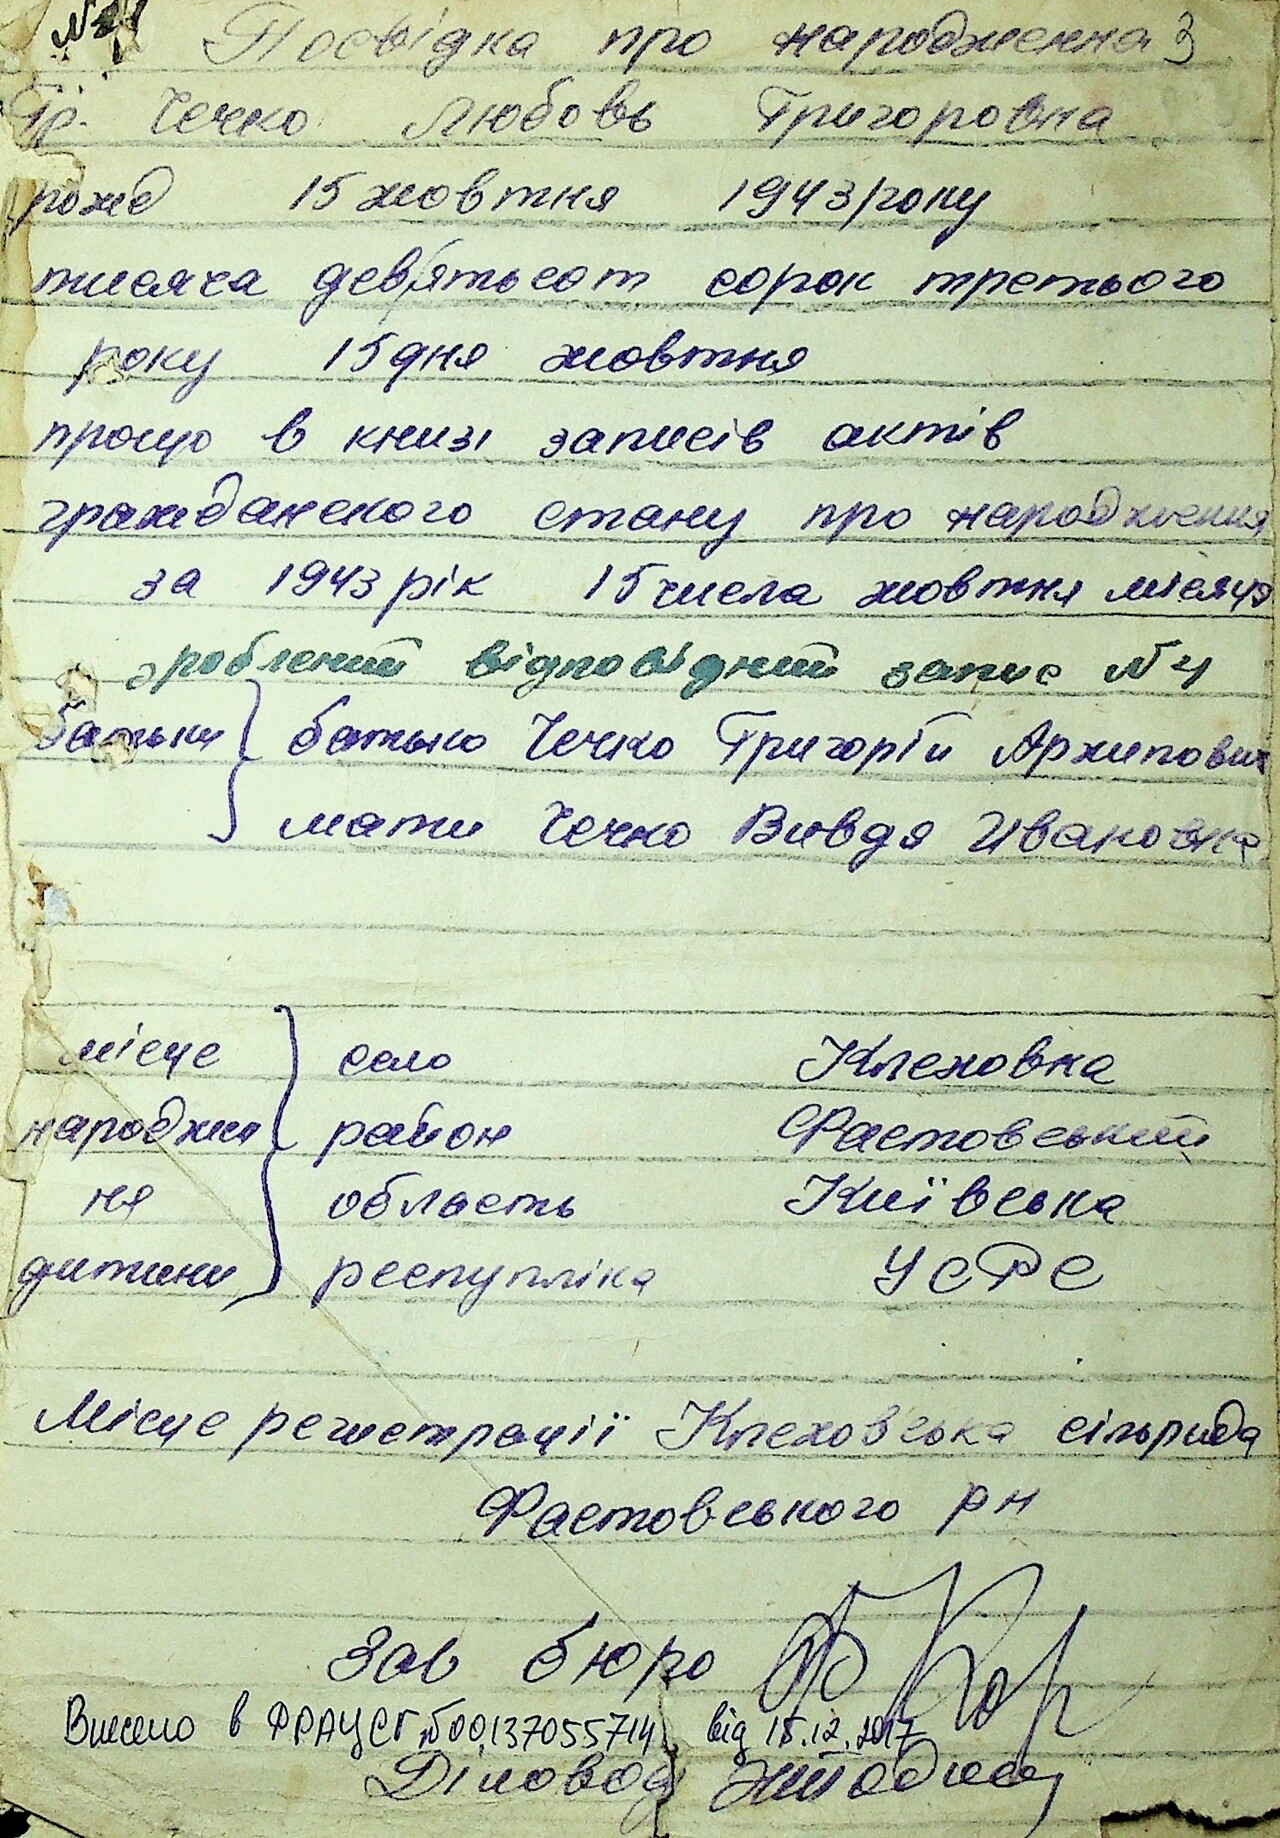 Посвідка про народження 3
Гр. Чечко Любовь Григоровна
рожд 15 жовтня 1943 року
тисяча девятьсот сорок третього
року 15 дня жовтня
прощо в книзі записів актів
гражданского стану про народження
за 1943 рік 15 числа жовтня місяця
зроблений відповідний запис N 4
батьки батько Чечко Григорій Архипович
мати Чечко Вивдя Ивановна
місце село Клеховка
народжен район Фастовський
ня область Київська
дитини респупліка УСРС
Місце регистрації Клеховська сільрада
Фастовського рн
Зав бюро
Внесено в ФРАЦСГ №00137055714 від 15.12.2017
Діловод